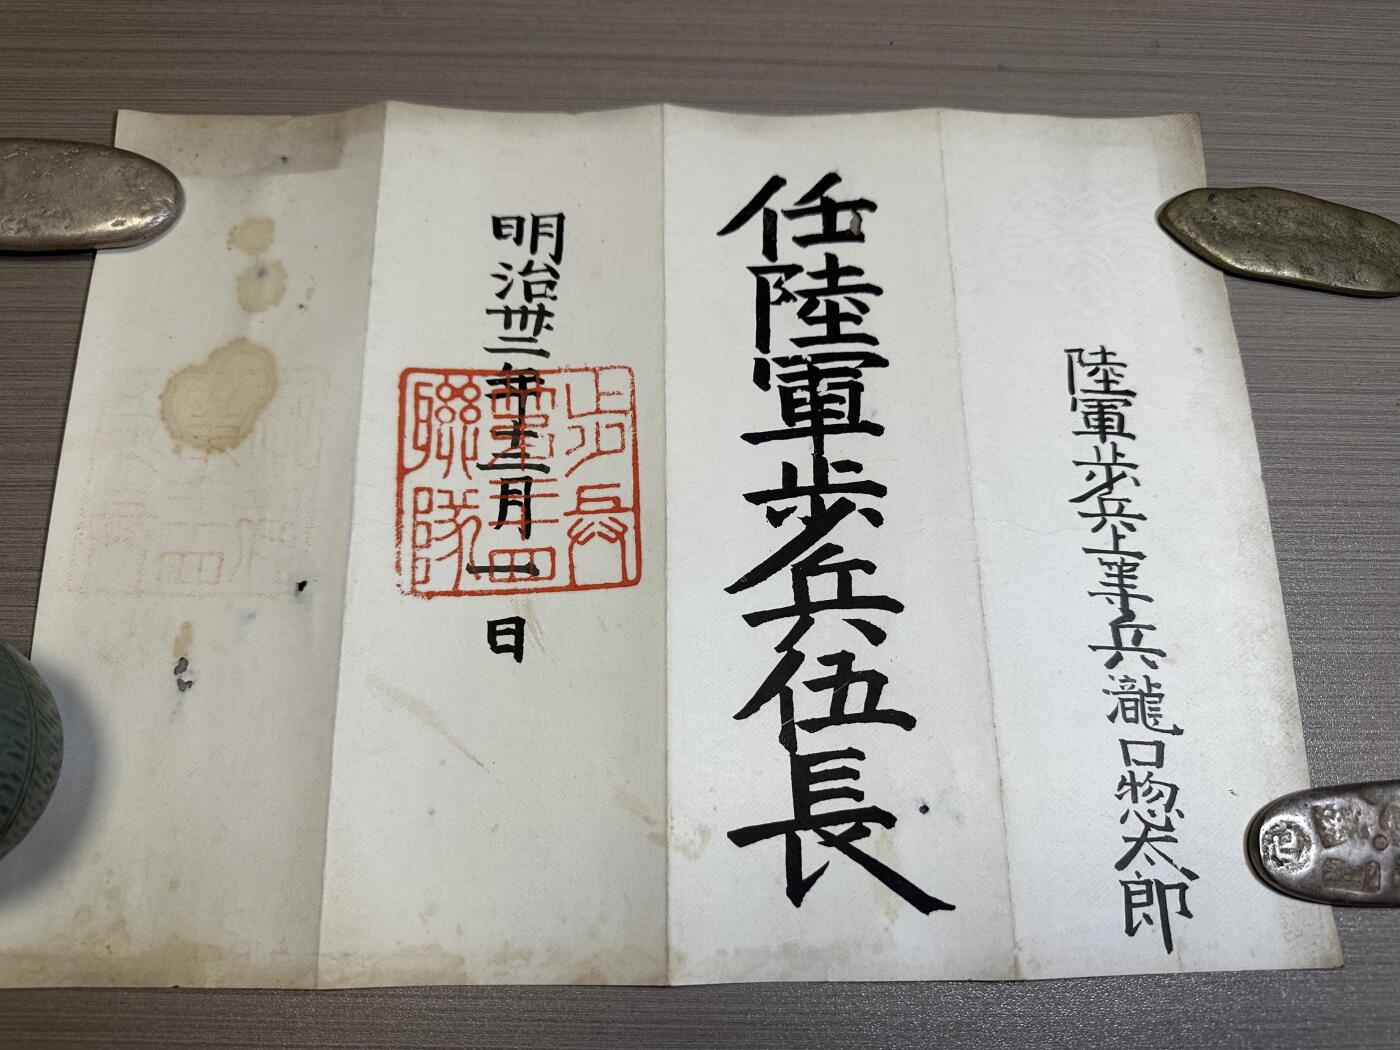 陸軍歩兵上等兵瀧口惣太郎
任陸軍歩兵伍長
明治卅二年十二月一日
歩兵
聯隊